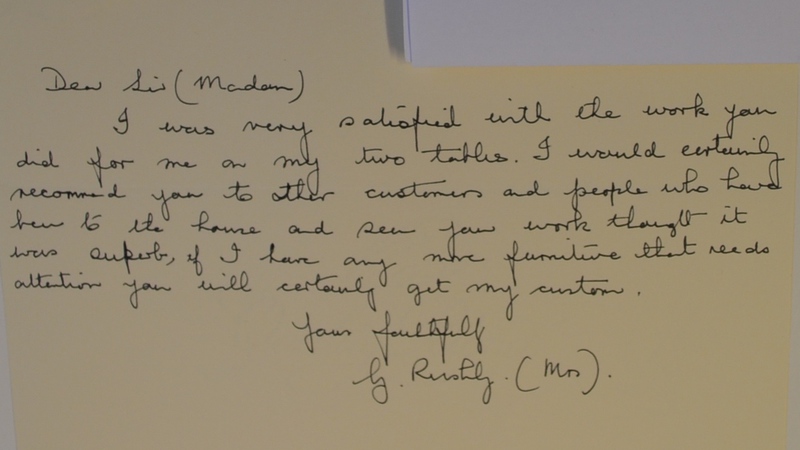 Dear Sir (Madam)
I was very satisfied with the work you
did for me on my two tables. I would certainly
recommed you to other customers and people who have
been to the house and seen your work thought it
was superb, if I have any more furniture that needs
attention you will certainly get my custom.
Yours faithfully
G. Rushby. (Mrs).